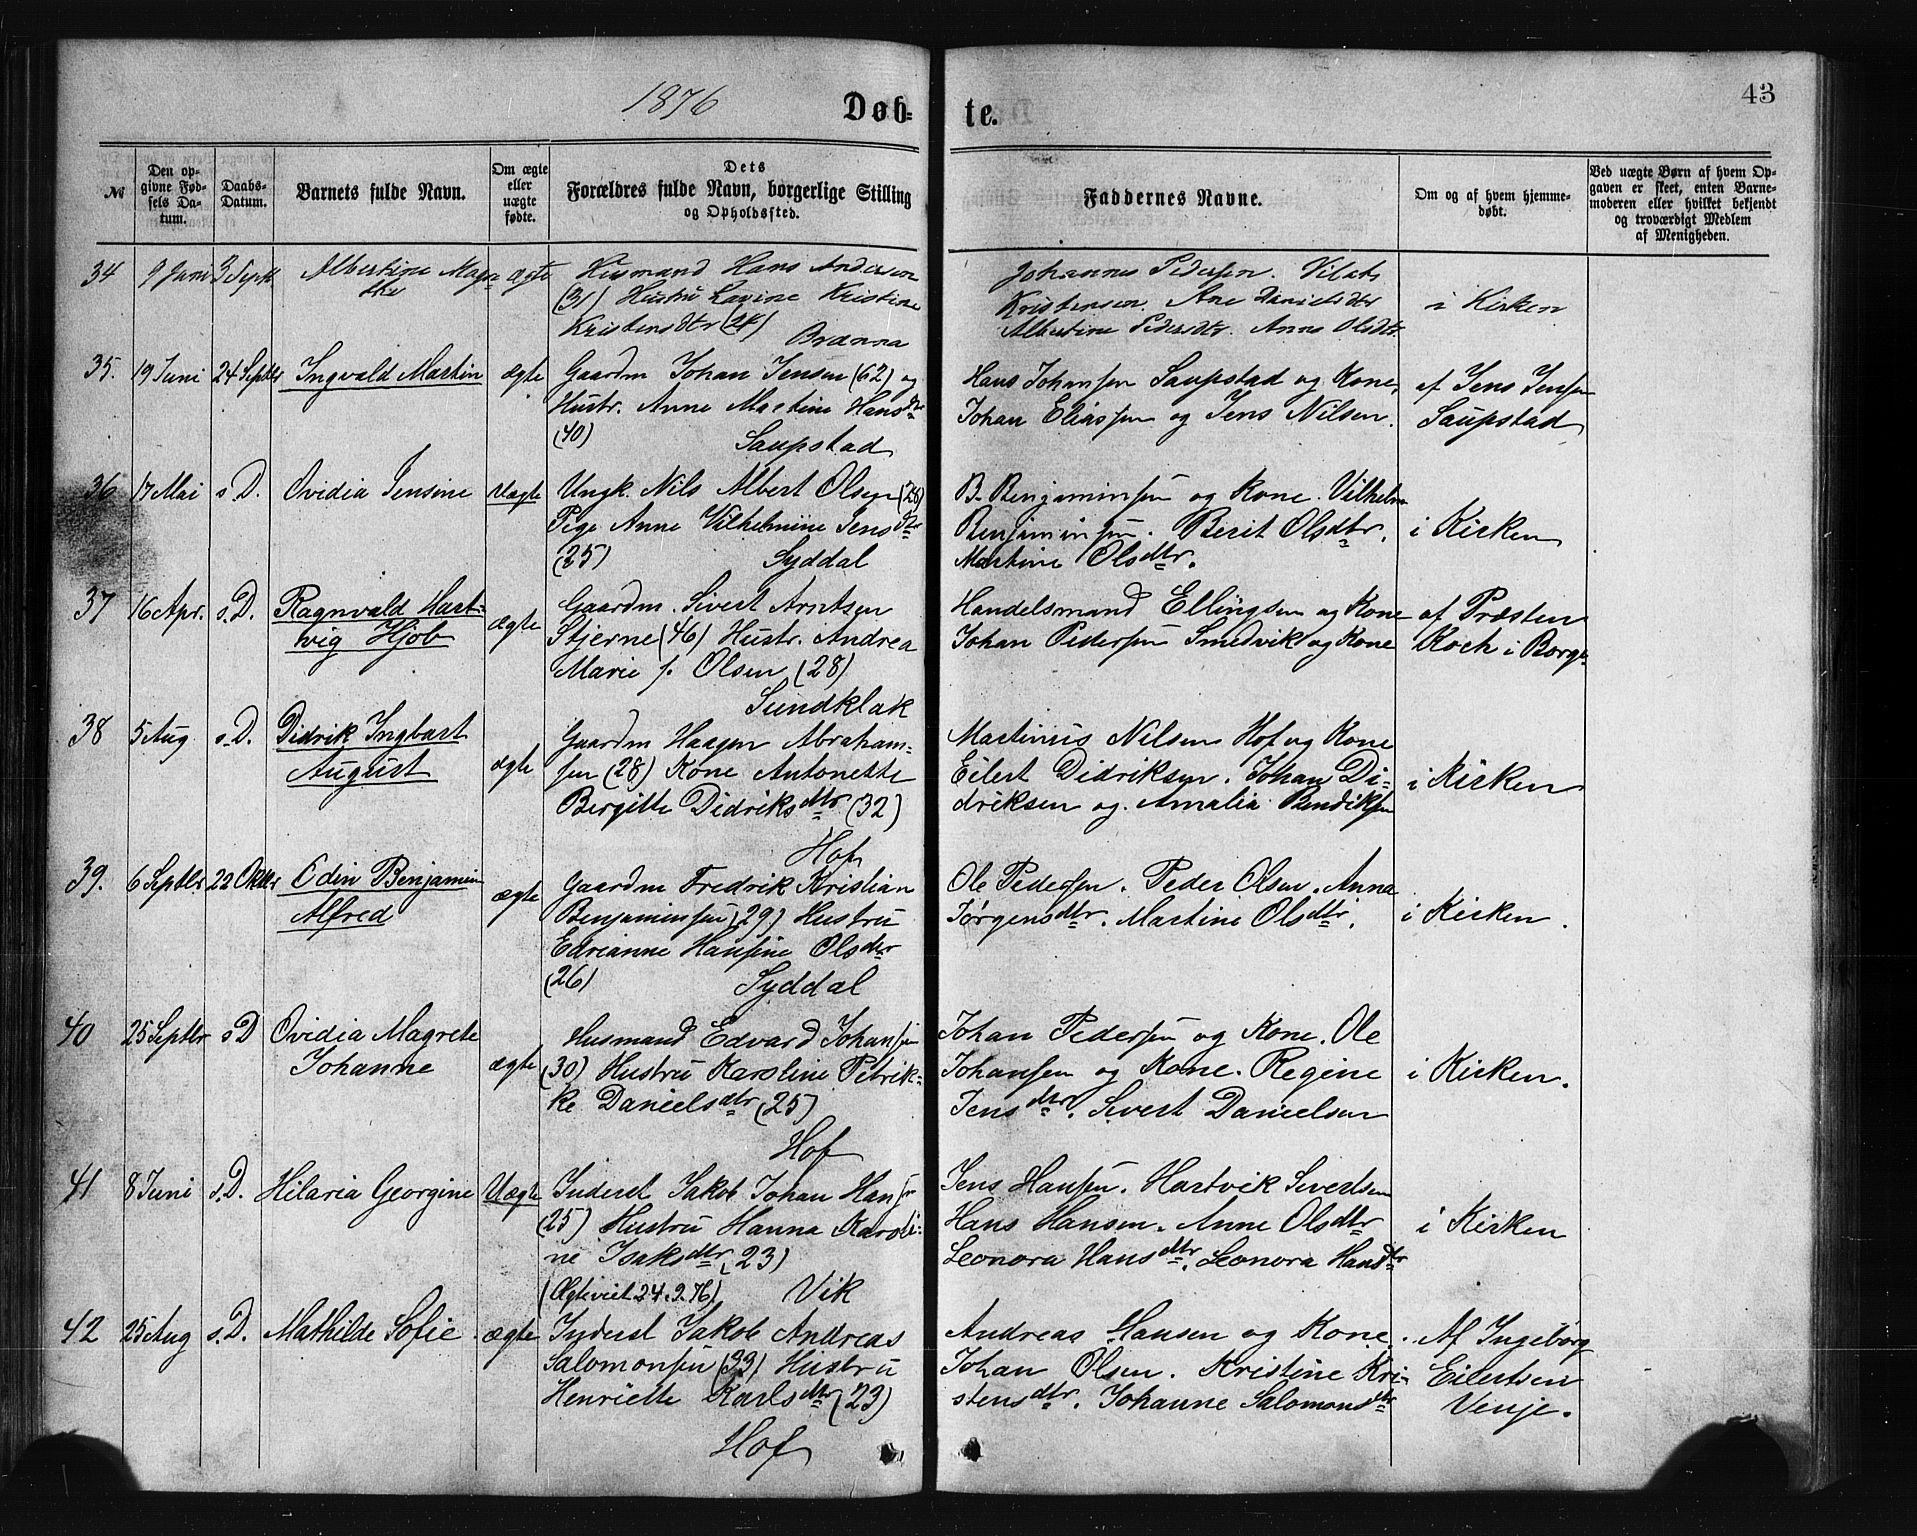 1876
Døb-
te.
43
№
Den opgivne Fødsels Datum.
Daabs-Datum.
Barnets fulde Navn.
Om ægte eller uægte fødte.
Dets Forældres fulde Navn, borgerlige Stilling og Opholdssted.
Faddernes Navne.
Om og af hvem hjemmedøbt.
Ved uægte Børn af hvem Opgaven er skeet, enten Barnemoderen eller hvilket bekjendt og troværdigt Medlem af Menigheden.
34
9 Juni
3 Septb
Albertine Magre
the
ægte
Husmand Hans Andersen
(31) Hustru Lavine Kristine
Kristensdtr (24)
Brænna
Johannes Pedersen. Vilats
Kristensen. Ane Danielsdtr
Albertine Pedersdtr. Anne Olsdtr
i Kirken
35.
19 Juni
24 Septbr
Ingvald Martin
ægte
Gaardm Johan Jensen (62) og
Hustr. Anne Martine Hansdtr
(40)
Saupstad
Hans Johansen Saupstad og Kone,
Johan Eliassen og Jens Nilsen.
af Jens Jensen
Saupstad
36
17 Mai
s. D.
Ovidia Jensine
Uægte
Ungk. Nils Albert Olsen (28)
Pige Anne Vilhelmine Jensdtr
(25)
Syddal
B. Benjaminsen og Kone. Vilhelm
Benjaminsen. Berit Olsdtr.
Martine Olsdtr.
i Kirken
37
16 Apr.
s. D.
Ragnvald Hart-
vig Hjob
ægte
Gaardm. Sivert Arntsen
Stjerne (46) Hustr. Andrea
Marie f. Olsen (28)
Sundklak
Handelsmand Ellingsen og Kone
Johan Pedersen Smedvik og Kone
af Præsten
Koch i Borge
38
5 Aug
s. D.
Didrik Ingbart
August
ægte
Gaardm Haagen Abraham-
sen (28) Kone Antonette
Bergitte Didriksdtr (32)
Hof
Martinus Nilsen Hof og Kone
Eilert Didriksen. Johan Di-
driksen og Amalia Bendiksen
i Kirken
39.
6 Septbr
22 Oktbr
Edin Benjamin
Alfred
ægte
Gaardm Fredrik Kristian
Benjaminsen (29) Hustru
Edrianne Hansine Olsdtr
(26)
Syddal
Ole Pedersen. Peder Olsen. Anna
Jørgensdtr. Martine Olsdtr.
i Kirken.
40
25 Septbr
s D
Ovidia Magrete
Johanne
ægte
Husmand Edvard Johansen
(30) Hustru Karoline Petrik-
ke Danielsdtr (25)
Hof
Johan Pedersen og Kone. Ole
Johansen og Kone. Regine
Jensdtr. Sivert Danielsen
i Kirken.
41
8 Juni
s. D.
Hilaria Georgine
Uægte
Inderst Jakob Johan Hansen
(25) Hustru Hanna Karoli-
ne Isaksdtr (23)
(Ægteviet 24.9.76)
Vik
Jens Hansen. Hartvik Sivertsen
Hans Hansen. Anne Olsdtr
Leonora Hansdtr. Leonora Hansdtr
i Kirken
42
25 Aug
s. D.
Mathilde Sofie
ægte
Inderst Jakob Andreas
Salomonsen (33) Hustru
Henriette Karlsdtr (23)
Hof
Andreas Hansen og Kone.
Johan Olsen. Kristine Kri-
stensdtr. Johanne Salomonsdtr
Af Ingeborg
Eilertsen
Venje.